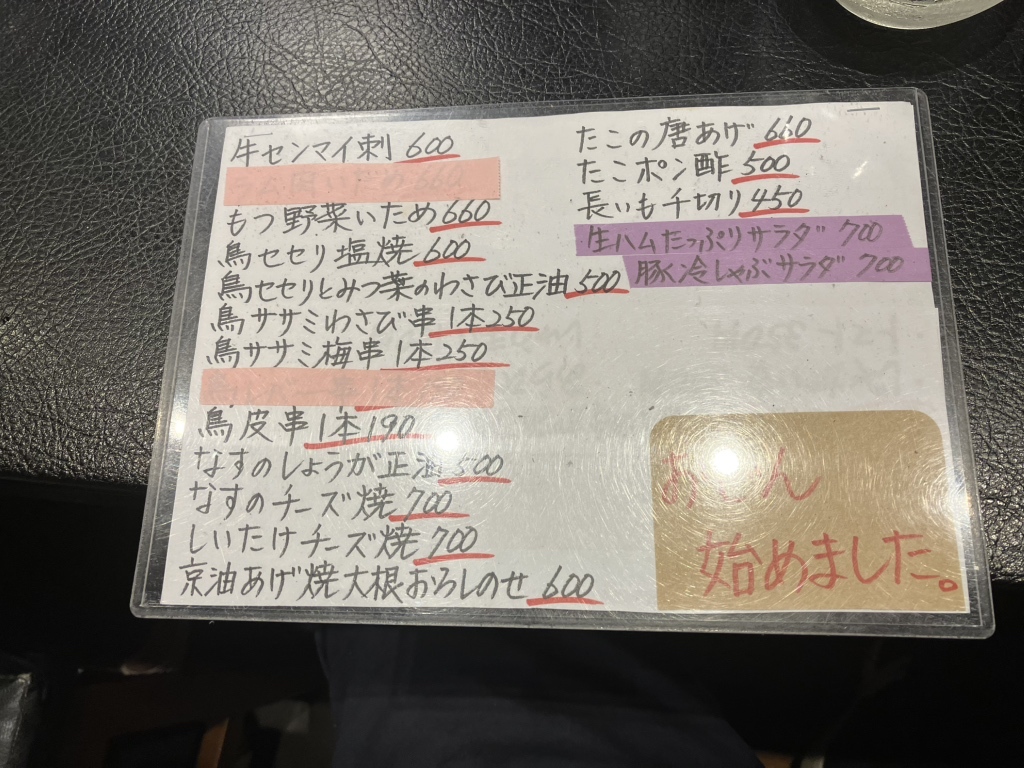 牛センマイ刺 600
もつ野菜いため 660
鳥セセリ塩焼 600
鳥セセリとみつ葉のわさび正油 500
鳥ササミわさび串 1本250
鳥ササミ梅串 1本250
鳥皮串 1本190
なすのしょうが正油 500
なすのチーズ焼 700
しいたけチーズ焼 700
京油あげ焼大根おろしのせ 600
たこの唐あげ 660
たこポン酢 500
長いも千切り 450
生ハムたっぷりサラダ 700
豚冷しゃぶサラダ 700
始めました。